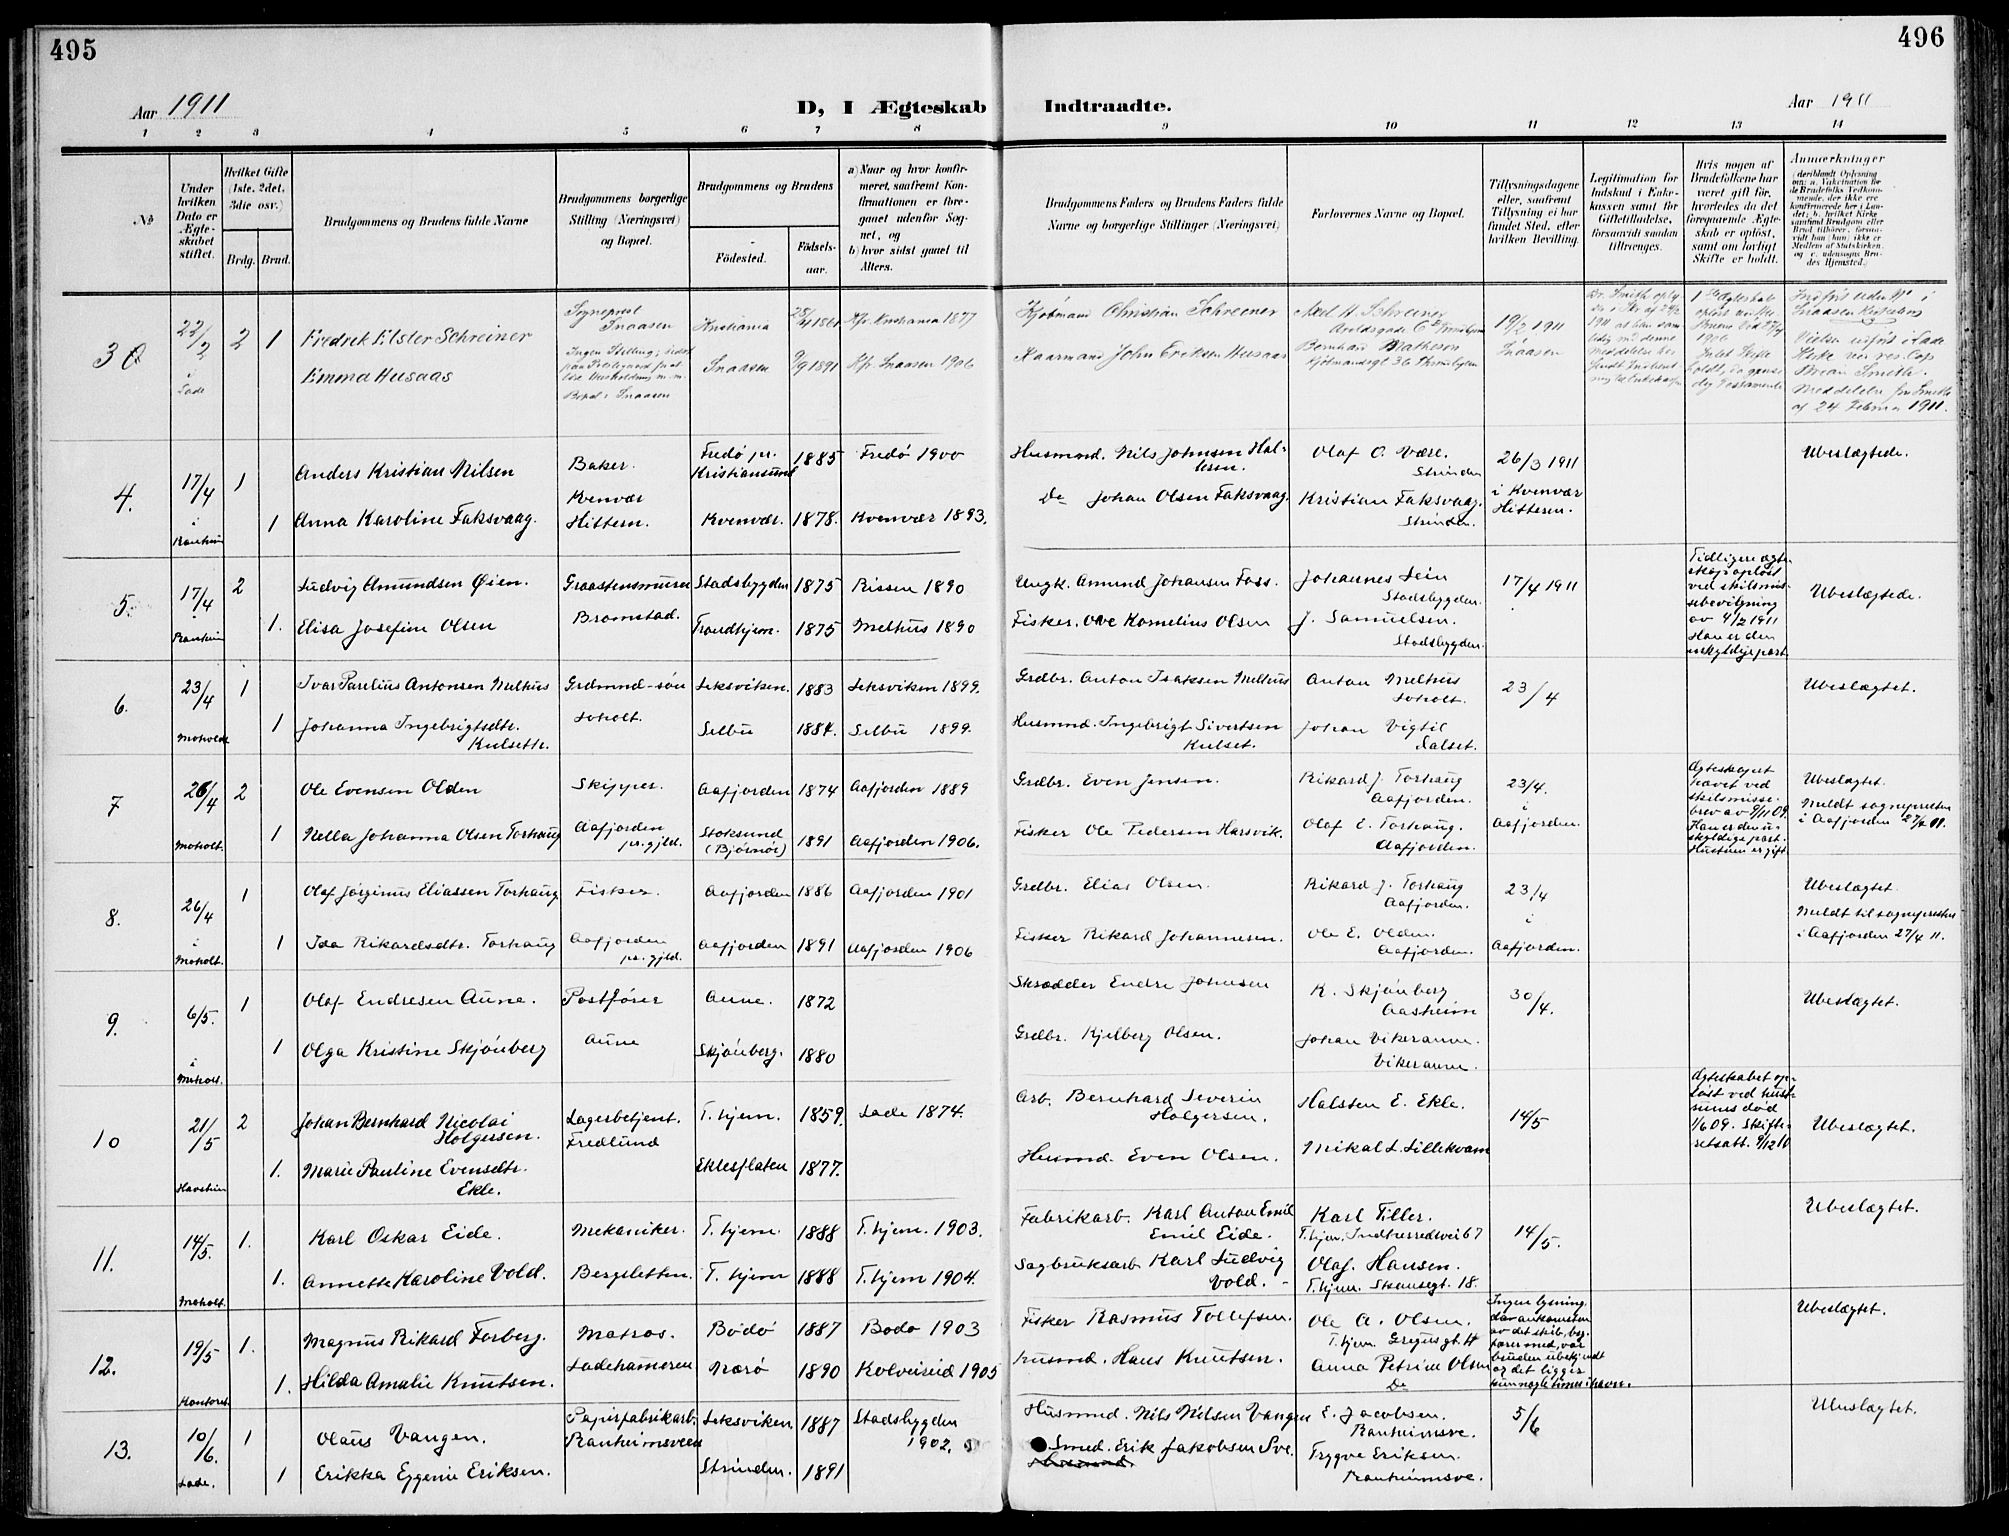 495
496
Aar 1911
D, I Ægteskab
Indtraadte.
Aar 1911
1 2 3 4 5 6 7 8 9 10 11 12 13 14
No
Under hvilken Dato er Ægteskabet stiftet.
Hvilket Gifte (1ste, 2det, 3die osv.)
Brdg. Brud.
Brudgommens og Brudens fulde Navne
Brudgommens borgerlige Stilling (Næringsvei) og Bopæl.
Brudgommens og Brudens
Födested.
Födsels-aar.
a) Naar og hvor konfirmeret, saafremt Konfirmationen er foregaaet udenfor Sognet, og
b) hvor sidst gaaet til Alters.
Brudgommens Faders og Brudens Faders fulde Navne og borgerlige Stillinger (Næringsvei)
Forlovernes Navne og Bopæl.
Tillysningsdagene eller, saafremt Tillysning ei har fundet Sted, efter hvilken Bevilling.
Legitimation for Indskud i Enkekassen samt for Giftetilladelse, forsaavidt saadan tiltrænges.
Hvis nogen af Brudefolkene har været gift för, hvorledes da det foregaaende Ægteskab er oplöst, samt om lovligt Skifte er holdt.
Anmærkninger
22/2 i Lade 2 1
Fredrik Elster Schreiner
Sogneprest Snaasen
Kristiania 28/4 1861 Kfr. Kristiania 1877
Kjöbmand Christian Schreiner
Axel H. Schreiner
19/2 1911 Snaasen
Emma Husaas
Snaasen 9/9 1891 Kfr. Snaasen 1906
Gaarmand John Eriksen Husaas
Bernhard Mathesen
4. 17/4 i Ranheim 1
Anders Kristian Nilsen
Baker.
Fredö pr. Kristiansund 1885 Fredö 1900
Husmnd. Nils Johnsen Halsen.
Olaf O. Være. Strinden
26/3 1911 i Kvenvær Hitteren.
Ubeslægtede.
1 Anna Karoline Faksvaag.
Kvenvær Hittern.
Kvenvær. 1878. Kvenvær 1893.
Do Johan Olsen Faksvaag.
Kristian Faksvaag. Strinden.
5. 17/4 i Ranheim 2
Ludvig Amundsen Øien.
Graastensmurer
Stadsbygden 1875 Rissen 1890
Ungk. Amund Johansen Foss.
Johannes Sein Stadsbygden.
17/4 1911
Tidligere ægteskap opløst ved skilsmissebevilgning av 4/2 1911 Han er den uskyldige part.
Ubeslægtede.
1. Elisa Josefine Olsen
Bromstad.
Trondhjem. 1875 Melhus 1890
Fisker. Ove Kornelius Olsen
J. Samuelsen. Stadsbygden.
6. 23/4 Moholdt 1
Ivar Parelius Antonsen Melhus
Grdmnd-søn
Leksviken. 1883 Leksviken 1899.
Grdbr. Anton Isaksen Melhus
Anton Melhus Loholt.
23/4
Ubeslægtet.
1 Johanna Ingebrigtsdtr. Kulseth.
Loholt.
Selbu 1884. Selbu 1899.
Husmnd. Ingebrigt Sivertsen Kulset.
Johan Vigtil Dalset.
7 26/4 Moholt. 2
Ole Evensen Olden
Skipper.
Aafjorden 1874 Aafjorden 1889
Grdbr. Even Jensen.
Rikard J. Torhaug Aafjorden.
23/4. i Aafjorden.
Ægteskapet hævet ved skilsmissebrev av 9/11 09. Han er den uskyldige part. Hustruen er gift
Ubeslægtet. Meldt sognepresten i Aafjorden 27/4 11.
1 Nella Johanna Olsen Torhaug
Aafjorden pr.gjld.
Stoksund (Bjørnør) 1891 Aafjorden 1906.
Fisker Ole Pedersen Harsvik.
Olaf E. Torhaug. Aafjorden.
8. 26/4 i Moholt. 1
Olaf Jørginus Eliassen Torhaug
Fisker.
Aafjorden 1886 Aafjorden 1901
Grdbr. Elias Olsen.
Rikard J. Torhaug Aafjorden.
23/4 i Aafjorden.
Ubeslægtet. Meldt til sognepresten i Aafjorden 27/4 11.
1 Ida Rikardsdtr. Torhaug
Aafjorden pr.gjld.
Aafjorden 1891 Aafjorden 1906
Fisker Rikard Johannesen.
Ole E. Olden. Aafjorden.
9. 6/5. i Moholt. 1
Olaf Endresen Aune.
Postfører
Aune. 1872
Skrædder Endre Johnsen
K. Skjønberg Aasheim
30/4.
Ubeslægtet.
1 Olga Kristine Skjønberg
Aune
Skjønberg. 1880
Grdbr. Kjelberg Olsen.
Johan Vikeraune. Vikeraune.
10 21/5 Havstein 2
Johan Bernhard Nicolai Holgersen.
Lagerbetjent. Fredlund
T.hjem. 1859. Lade 1874.
Arb. Bernhard Severin Holgersen.
Halsten E. Ekle.
14/5
Ægteskabet opløst ved hustruens død 1/6 09. Skifteretsatt. 9/12 10
Ubeslægtet.
1. Marie Pauline Evensdtr. Ekle.
Eklesplaten 1877.
Husmd. Even Olsen.
Mikal L. Lillekvam
11. 14/5. Moholt. 1.
Karl Oskar Eide.
Mekaniker.
T.hjem. 1888 T.hjem. 1903.
Fabrikarb. Karl Anton Emil Emil Eide.
Karl Tiller. T.hjem. Indherredsvei 67
14/5.
Ubeslægtet.
1. Annette Karoline Vold.
Bergsletten.
T.hjem 1888 T.hjem 1904.
Sagbruksarb. Karl Ludvig Vold.
Olaf. Hansen. T.hjem. Skansegt. 18.
12. 19/5 Kontoret 1.
Magnus Rikard Forberg.
Matros.
Bodø 1887 Bodø 1903
Fisker Rasmus Tollefsen.
Ole A. Olsen. T.hjem. Gregusgt. 14
Ingen lysning. da ankomsten av det skib, brg. farer med, var bruden ubekjendt og det ligger kun nogle timer i havn.
Ubeslægtet.
1. Hilda Amalie Knutsen.
Ladehameren
Nærø 1890 Kolvereid 1905
Husmd. Hans Knutsen.
Anna Petrine Olsen Do
13. 10/6. Lade. 1
Olaus Vangen.
Papirfabrikarb. Ranheimsveen
Leksviken 1887 Stadsbygden 1902.
Husmd. Nils Nilsen Vangen
E. Jacobsen. Ranheimsve.
5/6
Ubeslægtet.
1 Erikka Eggenie Eriksen.
Strinden. 1891
Smed. Erik Jakobsen Sve.
Trygve Eriksen. Ranheimsve.